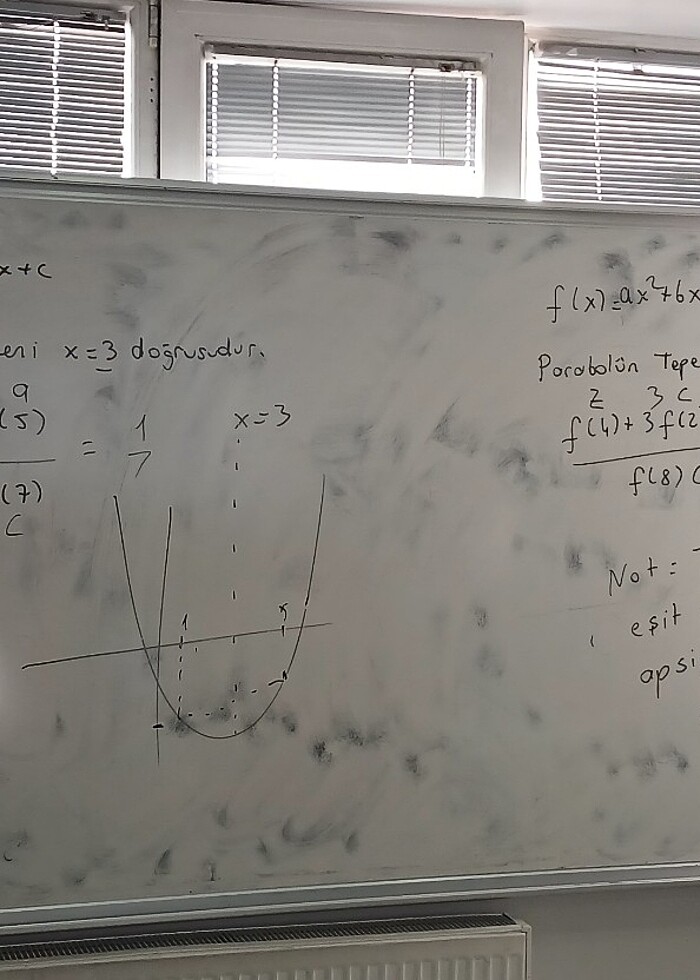 x+c
eni x=3 doğrusudur.
a
(5)
= 1
7
(7)
C
x=3
1
5
f(x)=ax²+bx
Parabolün Tepe
2 3 C
f(4)+3f(2
f(8)
Not =
eşit
apsi